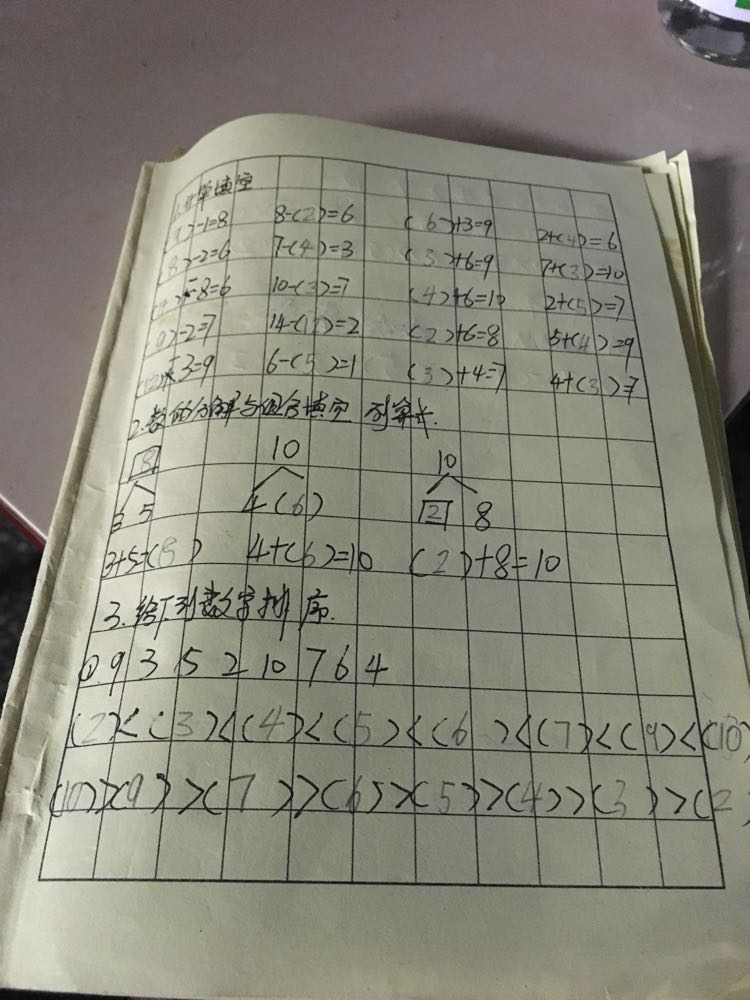 1.计算填空
(9)-1=8 8-(2)=6 (6)+3=9 2+(4)=6
(8)-2=6 7-(4)=3 (3)+6=9 7+(3)=10
-8=6 10-(3)=7 (4)+6=10 2+(5)=7
(9)-2=7 14-(12)=2 (2)+6=8 5+(4)=9
3=9 6-(5)=1 (3)+4=7 4+(3)=7
2.数的分解与组合填空 列算式.
8 10 10
3 5 4(6) 2 8
3+5=(8) 4+(6)=10 (2)+8=10
3.给下列数字排序.
①.9 3 5 2 10 7 6 4
(2)<(3)<(4)<(5)<(6)<(7)<(9)<(10)
(10)>(9)>(7)>(6)>(5)>(4)>(3)>(2